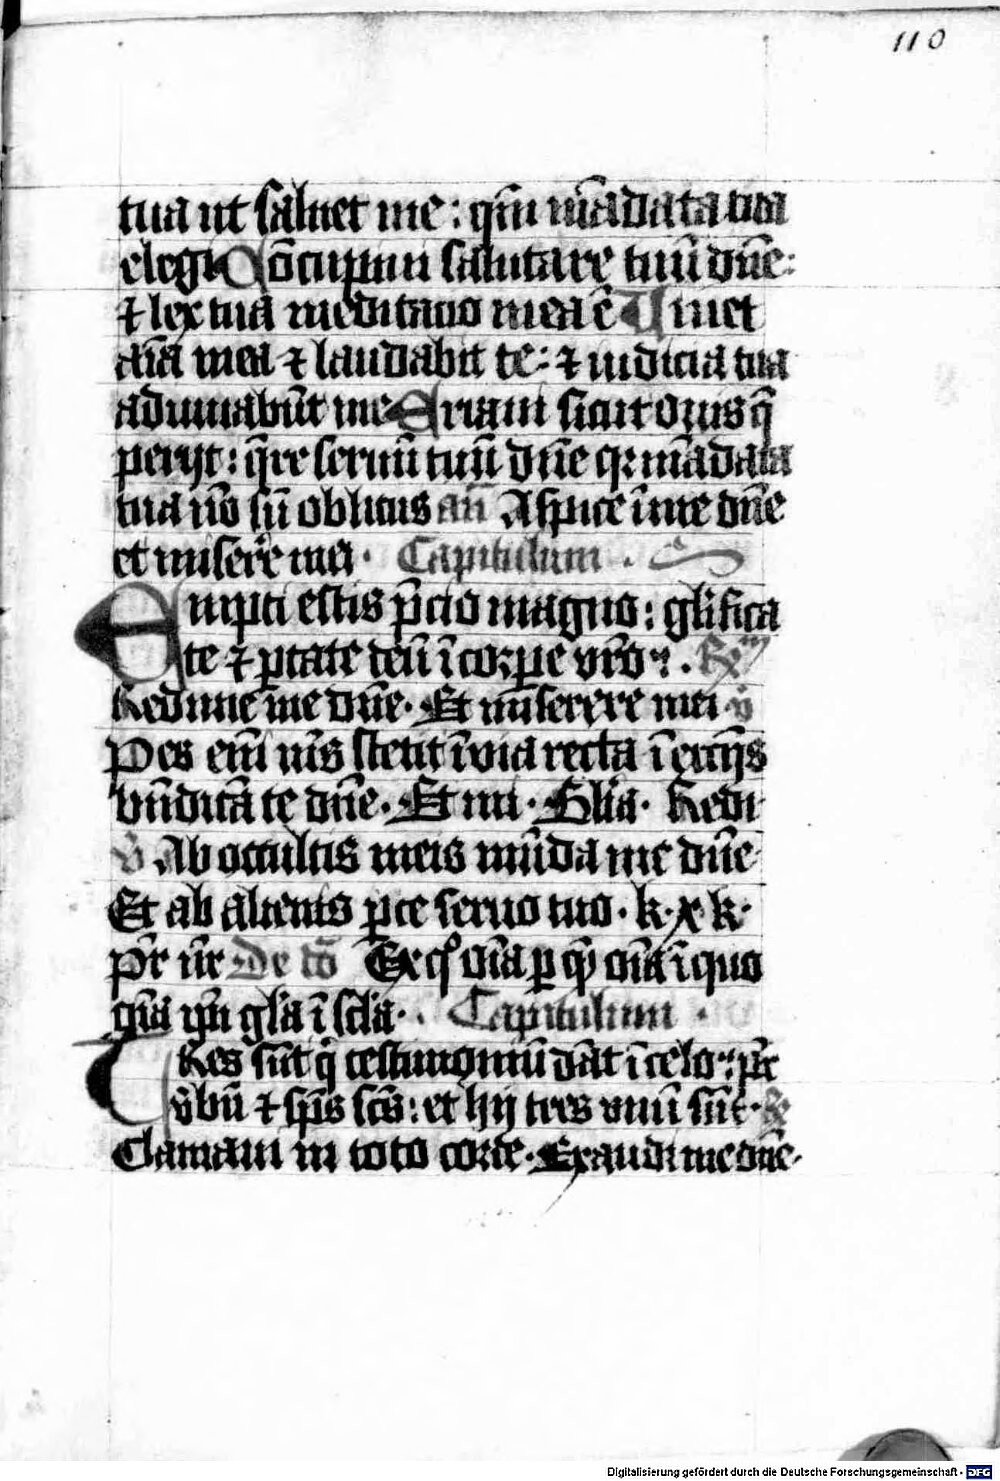 110
tua ut saluet me : qm̄ mādata tua
elegi Cōcupiui salutare tuū dn̄e :
⁊ lex tua meditatio mea ē Uiuet
aīa mea ⁊ laudabit te : ⁊ iudicia tua
adiuuabūt me Erraui sicut ouis q̄
perijt : q̄re seruū tuū dn̄e q: mādata
tua nō sū oblitus an̄ Aspice ī me dn̄e
et miserēre mei . Capitulum .
Empti estis p̄cio magno : glīfica
te ⁊ ptate deū ī corpe vrō
Redime me dn̄e . Et miserere mei v̄
Pes em̄ ms̄ stetit ī via recta ī eccijs
bn̄dicā te dn̄e . Et mi . Glīa . Redi
v̄ Ab occultis meis mūda me dn̄e
Et ab alienis pce seruo tuo . k . x k .
Pr̄ nr̄ De tō Ex q° oīa p quē oīa ī quo
oīa ip̄i glīa ī scla . Capitulum .
Tres sūt q̄ testimoniū dāt ī celo : pr̄
v̄bū ⁊ sps̄ scs̄ : et hij tres vnū sūt .
Clamaui in toto corde . Exaudi me dn̄e .
Digitalisierung gefördert durch die Deutsche Forschungsgemeinschaft - DFG